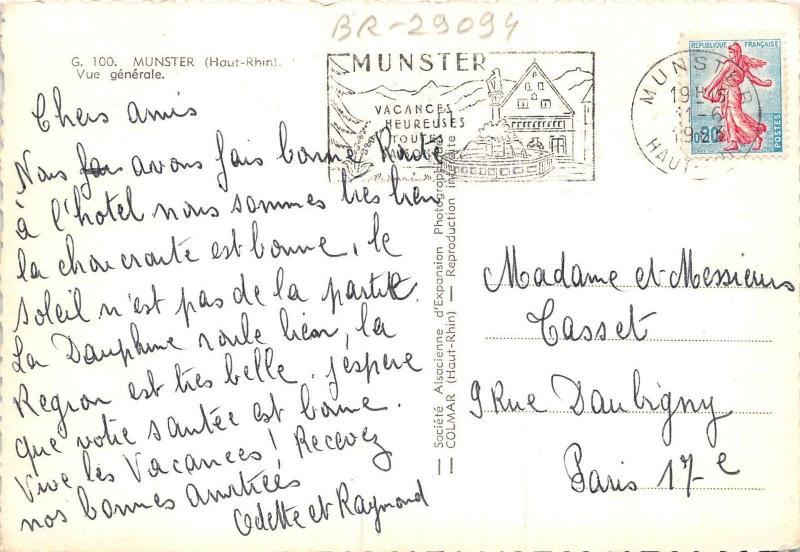 BR-29094
G. 100. MUNSTER (Haut-Rhin).
Vue générale.
MUNSTER
VACANCES
HEUREUSES
TOUTE
MUNSTER
19H
HAUT-RHIN
REPUBLIQUE FRANÇAISE
0,20
POSTES
Chers amis
Nous avons fais bonne Route
à l'hotel nous sommes très bien
la choucroute est bonne, le
soleil n'est pas de la partie.
La Dauphine roule bien, la
Region est très belle. j'espère
que votre santée est bonne.
Vive les Vacances! Recevez
nos bonnes amitiées
Odette et Raymond
Société Alsacienne d'Expansion Photographique
COLMAR (Haut-Rhin) — Reproduction interdite
Madame et Messieurs
Casset
9 Rue Daubigny
Paris 17e